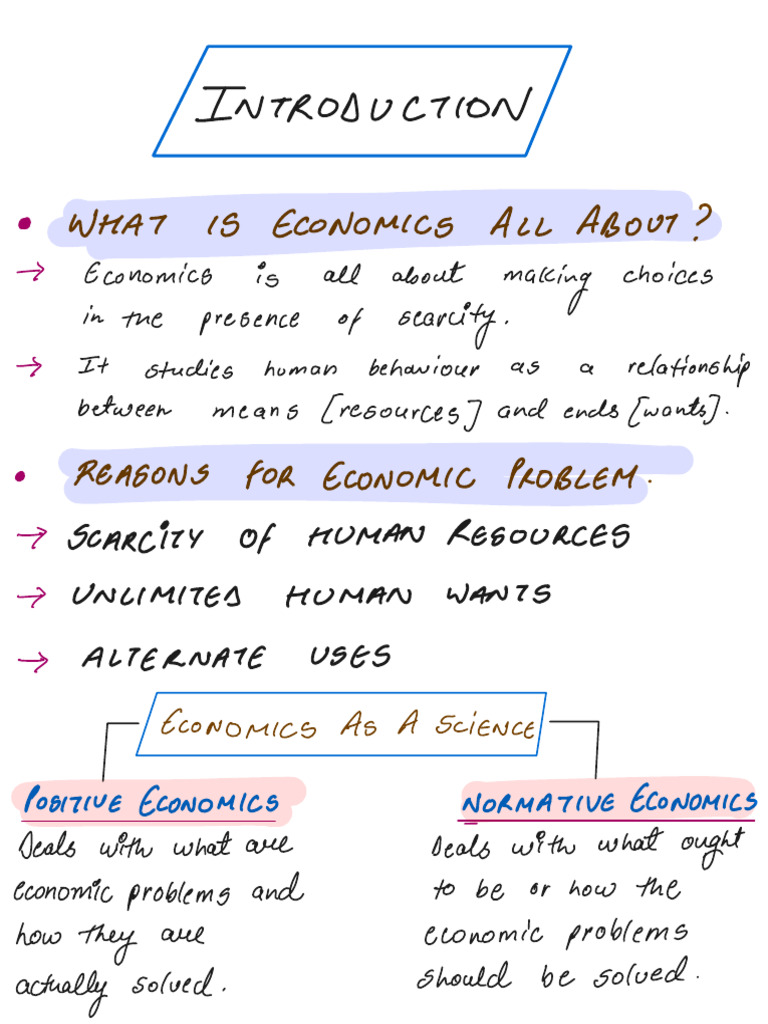 INTRODUCTION
• WHAT IS ECONOMICS ALL ABOUT?
→ Economics is all about making choices
in the presence of scarcity.
→ It studies human behaviour as a relationship
between means [resources] and ends [wants].
• REASONS FOR ECONOMIC PROBLEM.
→ SCARCITY OF HUMAN RESOURCES
→ UNLIMITED HUMAN WANTS
→ ALTERNATE USES
ECONOMICS AS A SCIENCE
POSITIVE ECONOMICS
Deals with what are
economic problems and
how they are
actually solved.
NORMATIVE ECONOMICS
Deals with what ought
to be or how the
economic problems
should be solved.